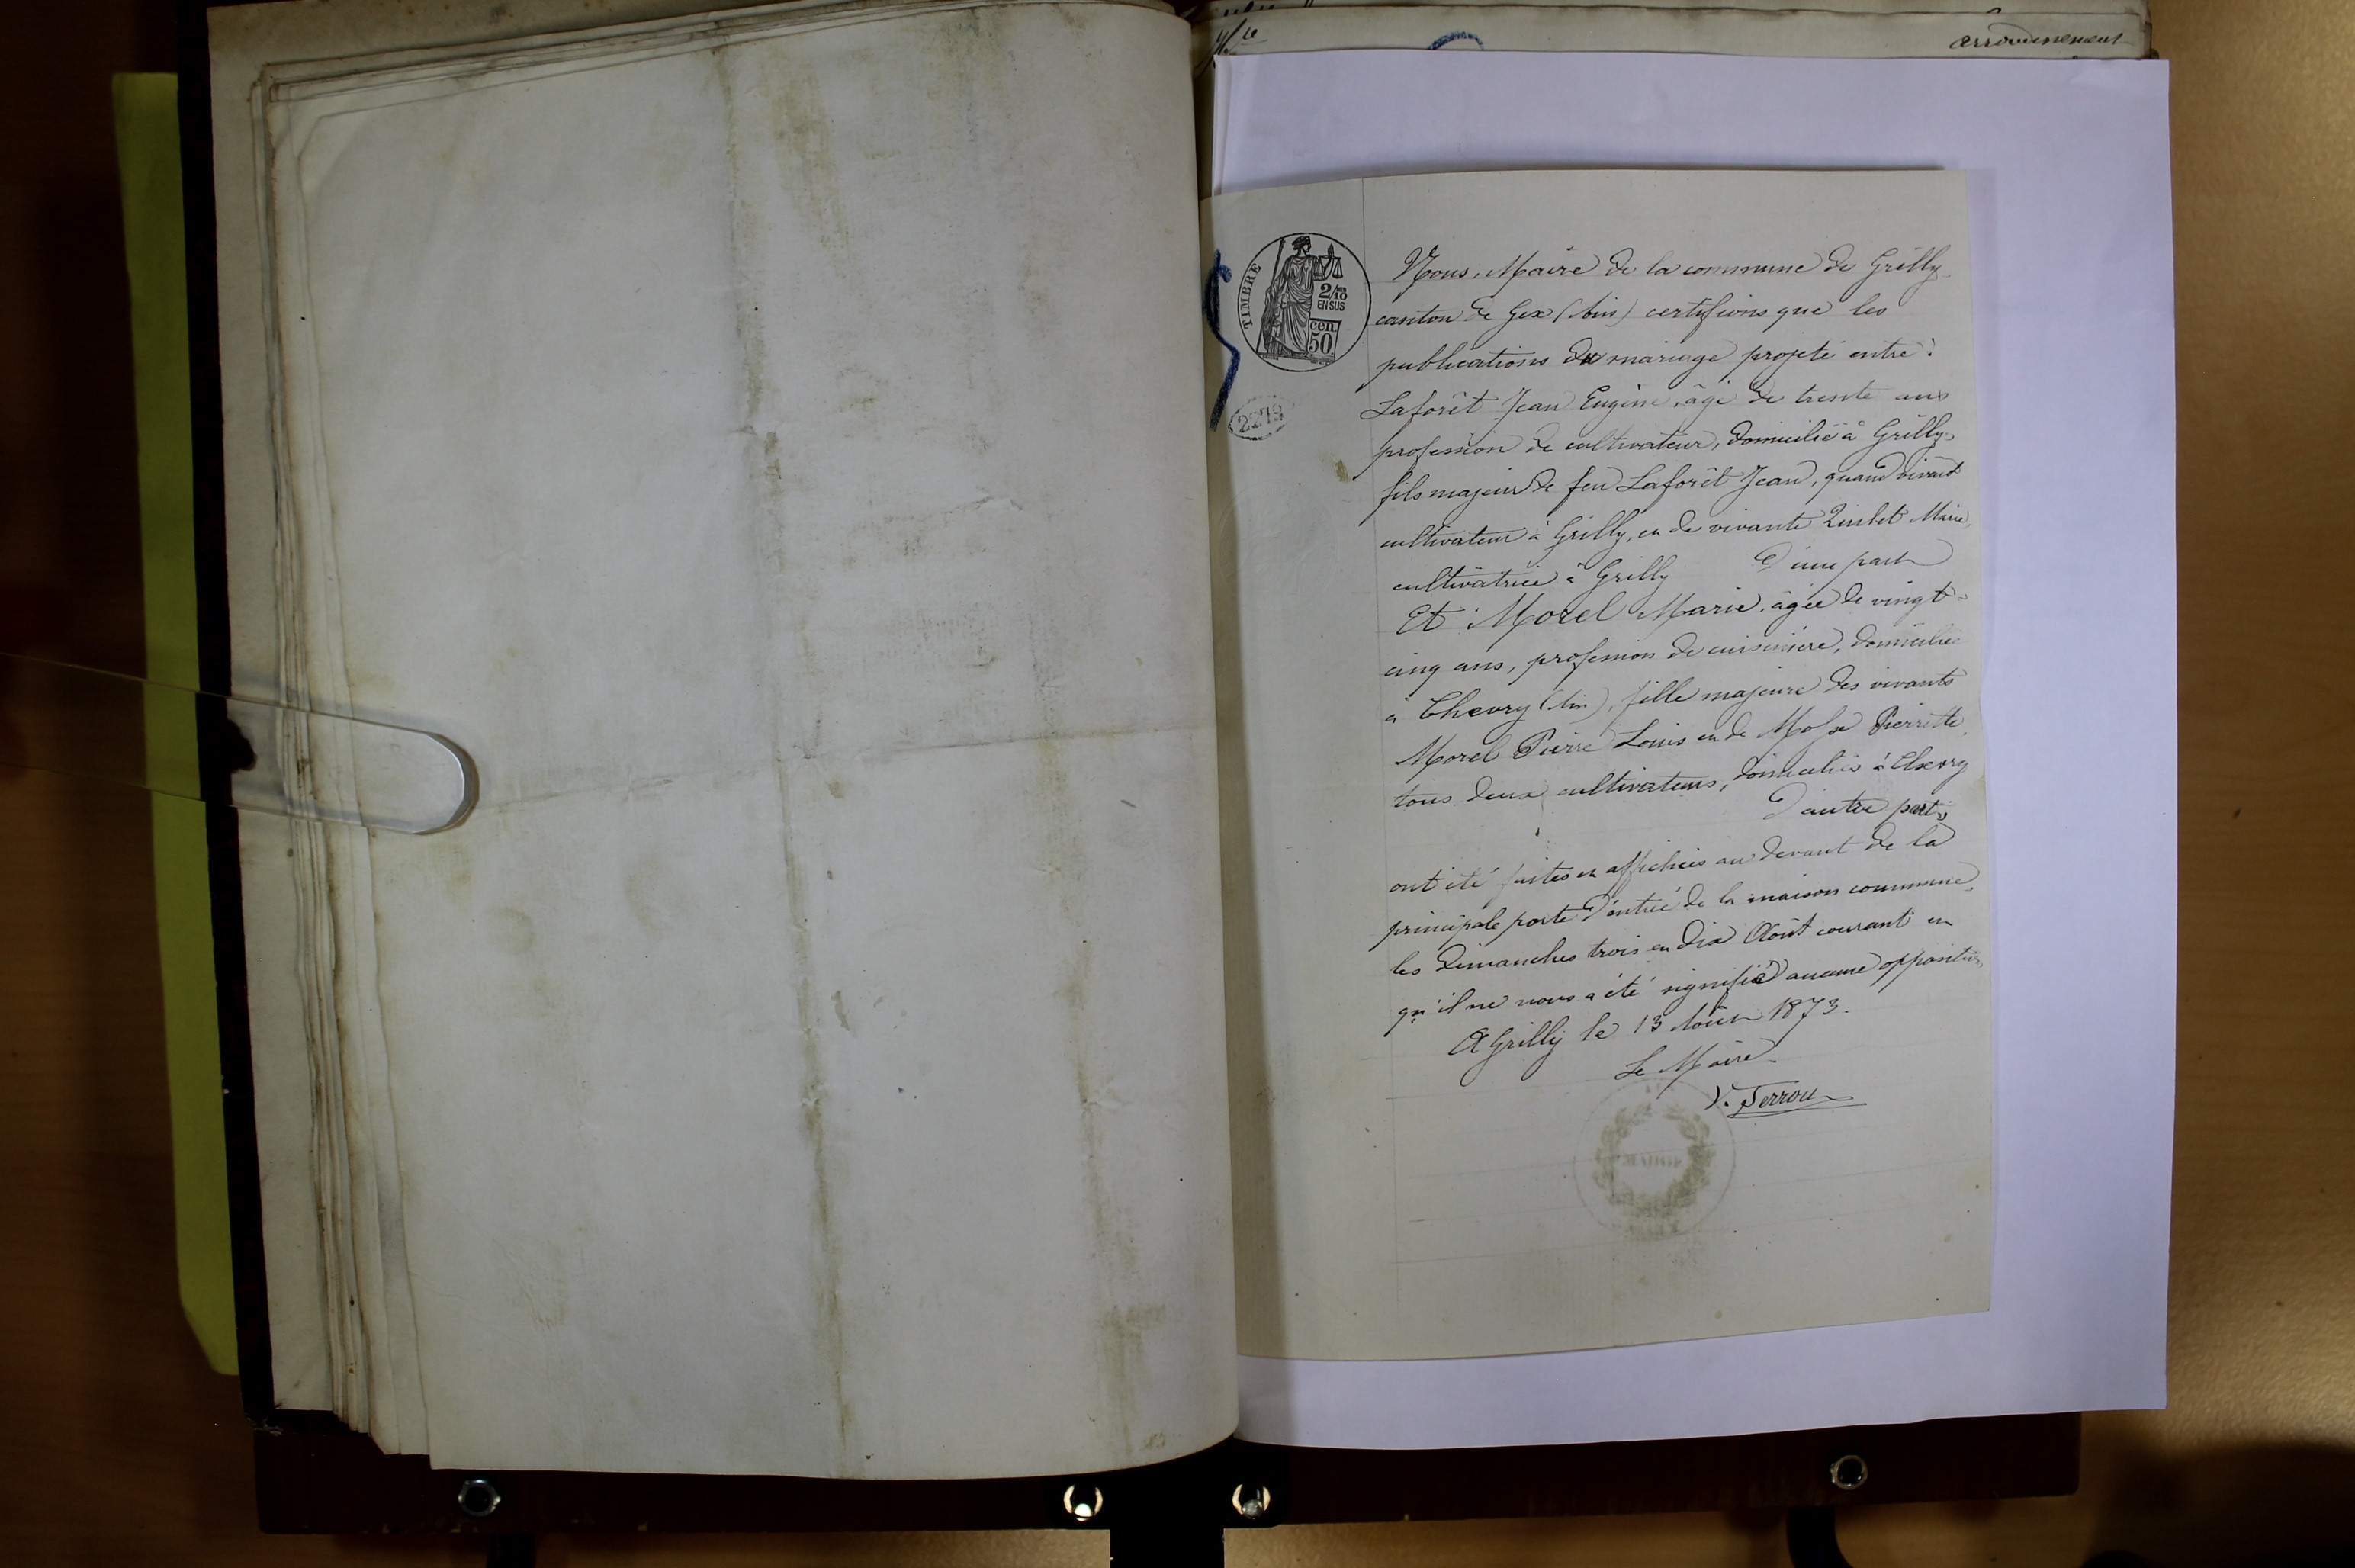 arrondissement
TIMBRE
2/10
EN SUS
cen.
50
Nous, Maire de la commune de Grilly
canton de Gex (Ain) certifions que les
publications du mariage projeté entre :
Laforêt Jean Eugène, âgé de trente ans
profession de cultivateur, domicilié à Grilly,
fils majeur de feu Laforêt Jean, quand vivant
cultivateur à Grilly, et de vivante Marie,
cultivatrice à Grilly D'une part
Et Morel Marie, âgée de vingt-
cinq ans, profession de cuisinière, domiciliée
à Chevry (Ain), fille majeure des vivants
Morel Pierre Louis et de Pierrette,
tous deux cultivateurs, domiciliés à Chevry
D'autre part,
ont été faites et affichées au devant de la
principale porte d'entrée de la maison commune,
les Dimanches trois et dix Août courant et
qu'il ne nous a été signifié aucune opposition.
A Grilly le 13 Août 1873.
Le Maire
MAIRIE